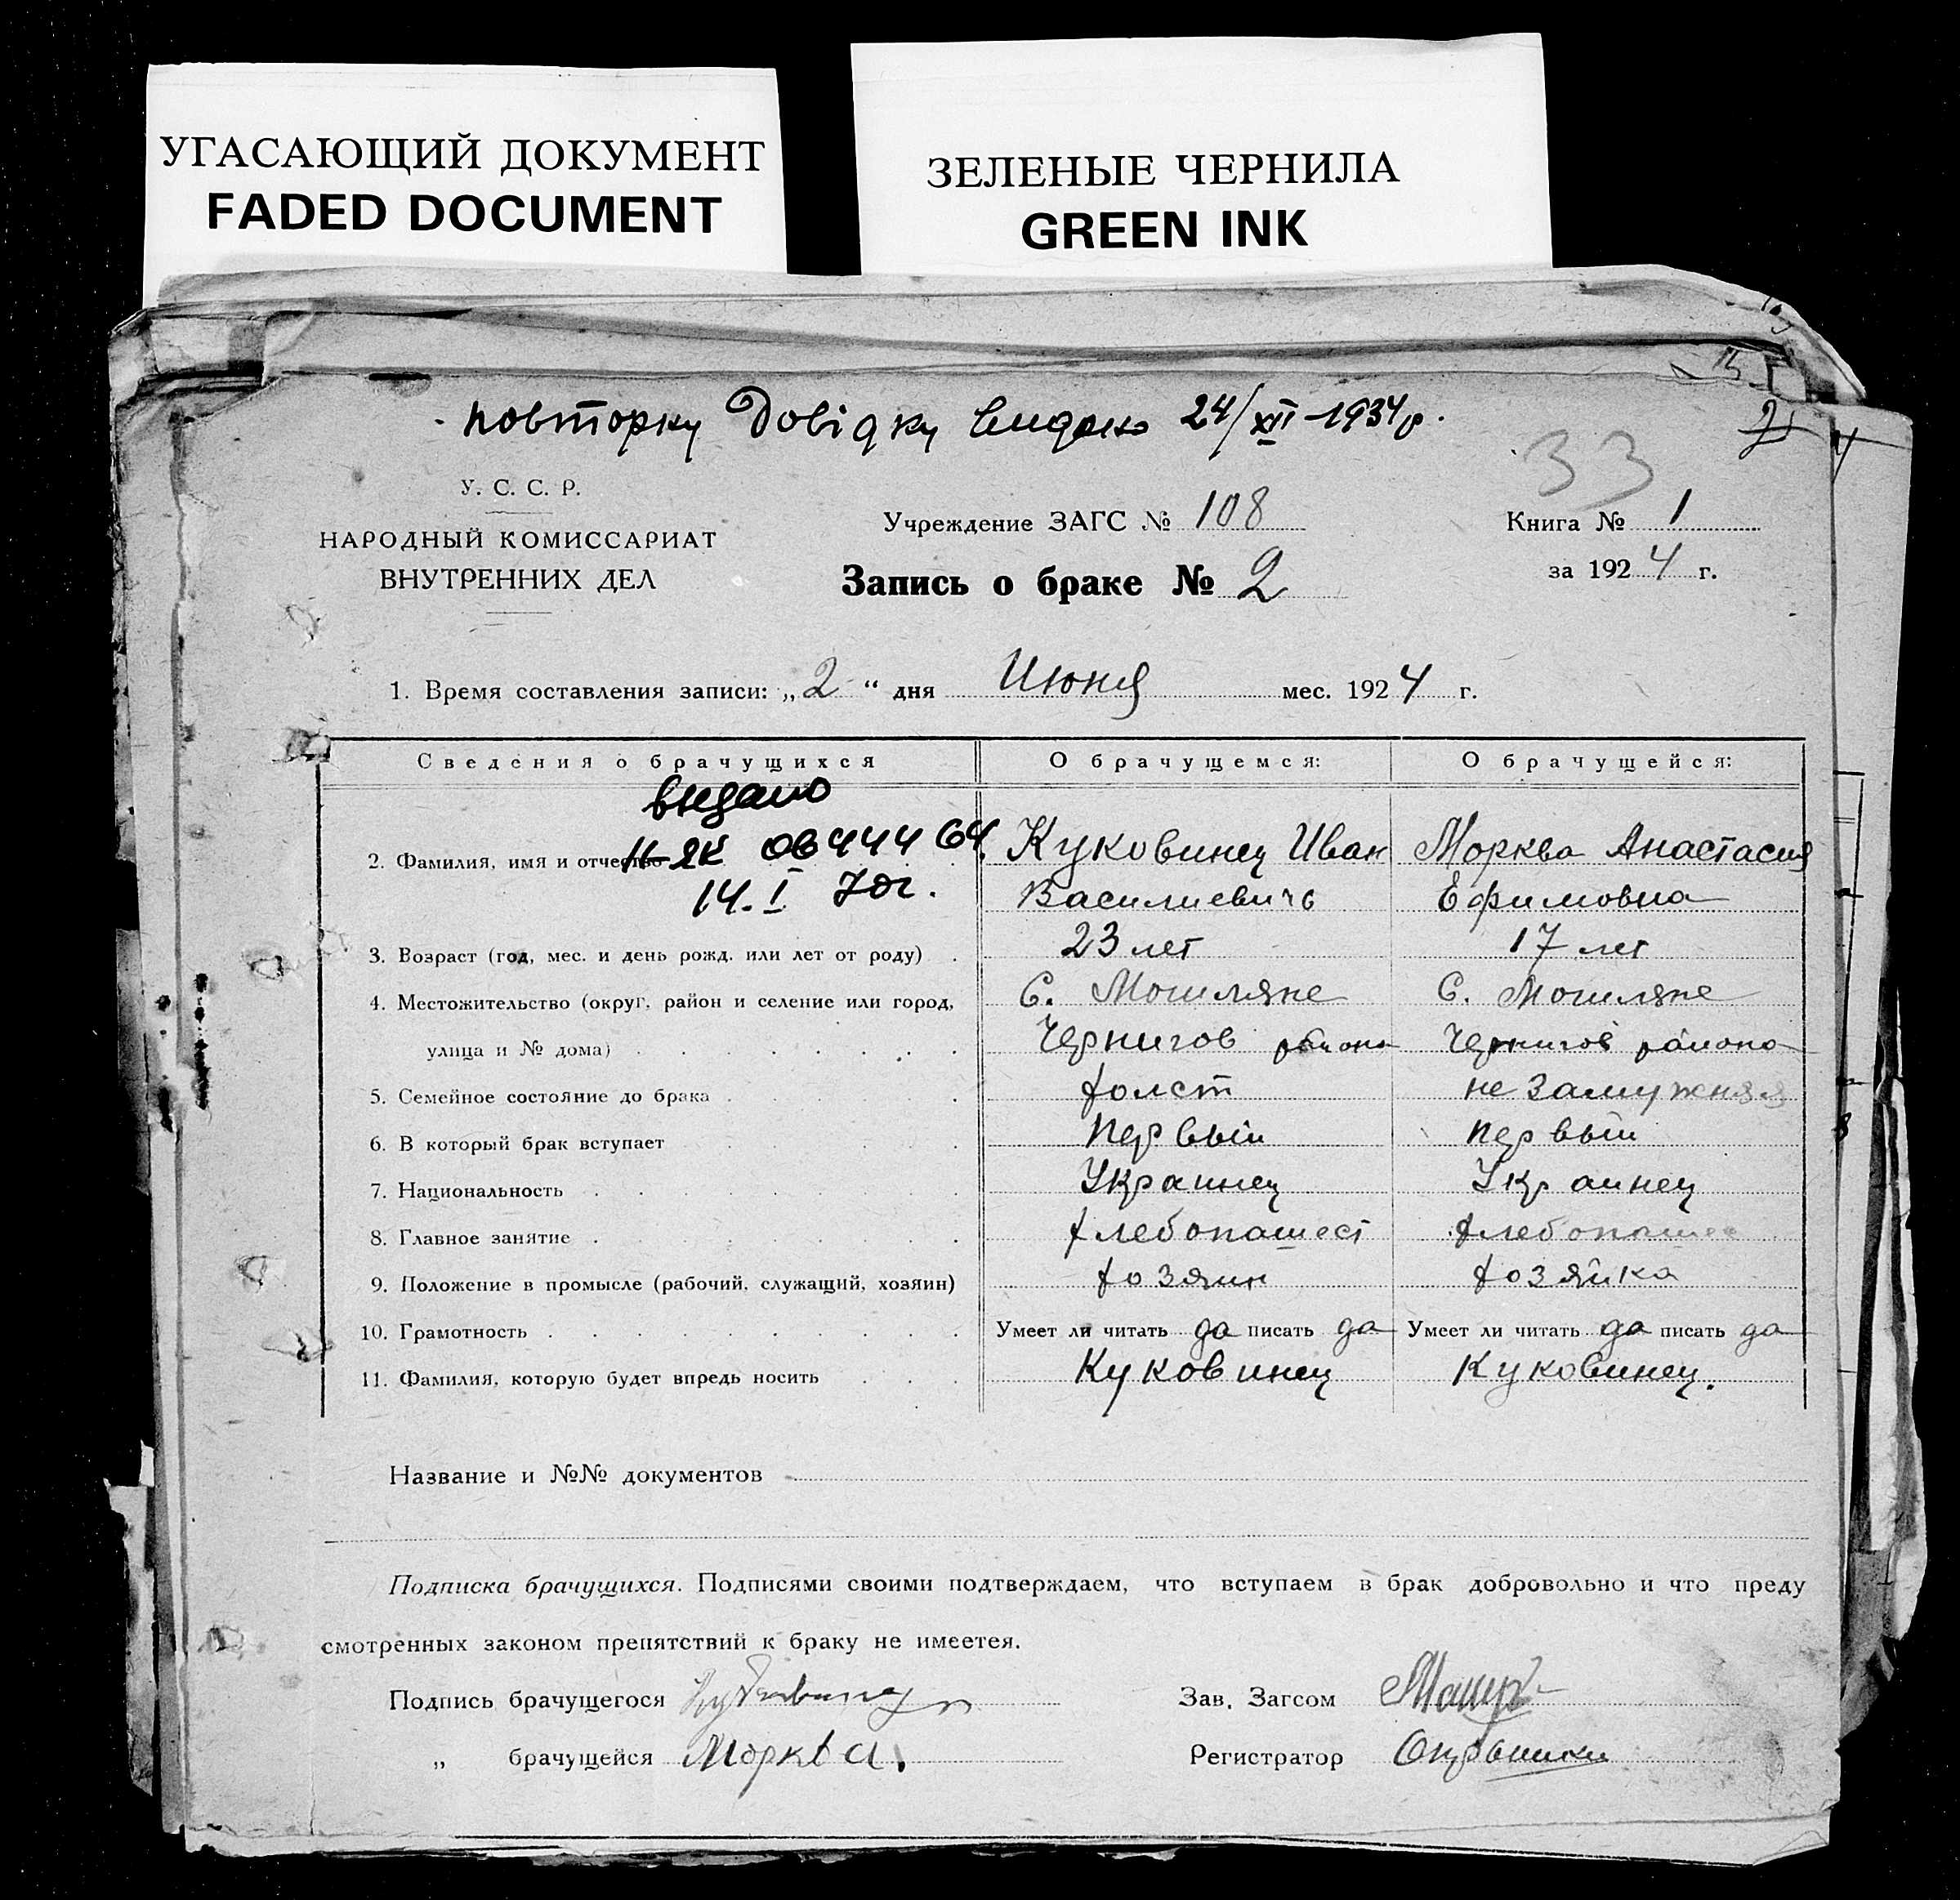 УГАСАЮЩИЙ ДОКУМЕНТ
FADED DOCUMENT
ЗЕЛЕНЫЕ ЧЕРНИЛА
GREEN INK
повторну Довідку видано 24/XII-1934р.
33
У. С. С. Р.
НАРОДНЫЙ КОМИССАРИАТ
ВНУТРЕННИХ ДЕЛ
Учреждение ЗАГС № 108
Запись о браке № 2
Книга № 1
за 1924 г.
1. Время составления записи: „2“ дня Июня мес. 1924 г.
Сведения о брачущихся О брачущемся: О брачущейся:
видано
II-ЯК 0644464
14. I 70г.
2. Фамилия, имя и отчество Куковинец Иван Морква Анастасия
Василиевичь Ефимовна
3. Возраст (год, мес. и день рожд. или лет от роду) 23 лет 17 лет
4. Местожительство (округ, район и селение или город, С. Могиляне С. Могиляне
улица и № дома) Чернигов района Чернигов района
5. Семейное состояние до брака холст незамужняя
6. В который брак вступает первый первый
7. Национальность Украинец Украинец
8. Главное занятие хлебопашест хлебопашес
9. Положение в промысле (рабочий, служащий, хозяин) хозяин хозяйка
10. Грамотность Умеет ли читать да писать да Умеет ли читать да писать да
11. Фамилия, которую будет впредь носить Куковинец Куковинец.
Название и №№ документов
Подписка брачущихся. Подписями своими подтверждаем, что вступаем в брак добровольно и что преду
смотренных законом препятствий к браку не имеетея.
Подпись брачущегося Зав. Загсом
„ брачущейся Морква. Регистратор